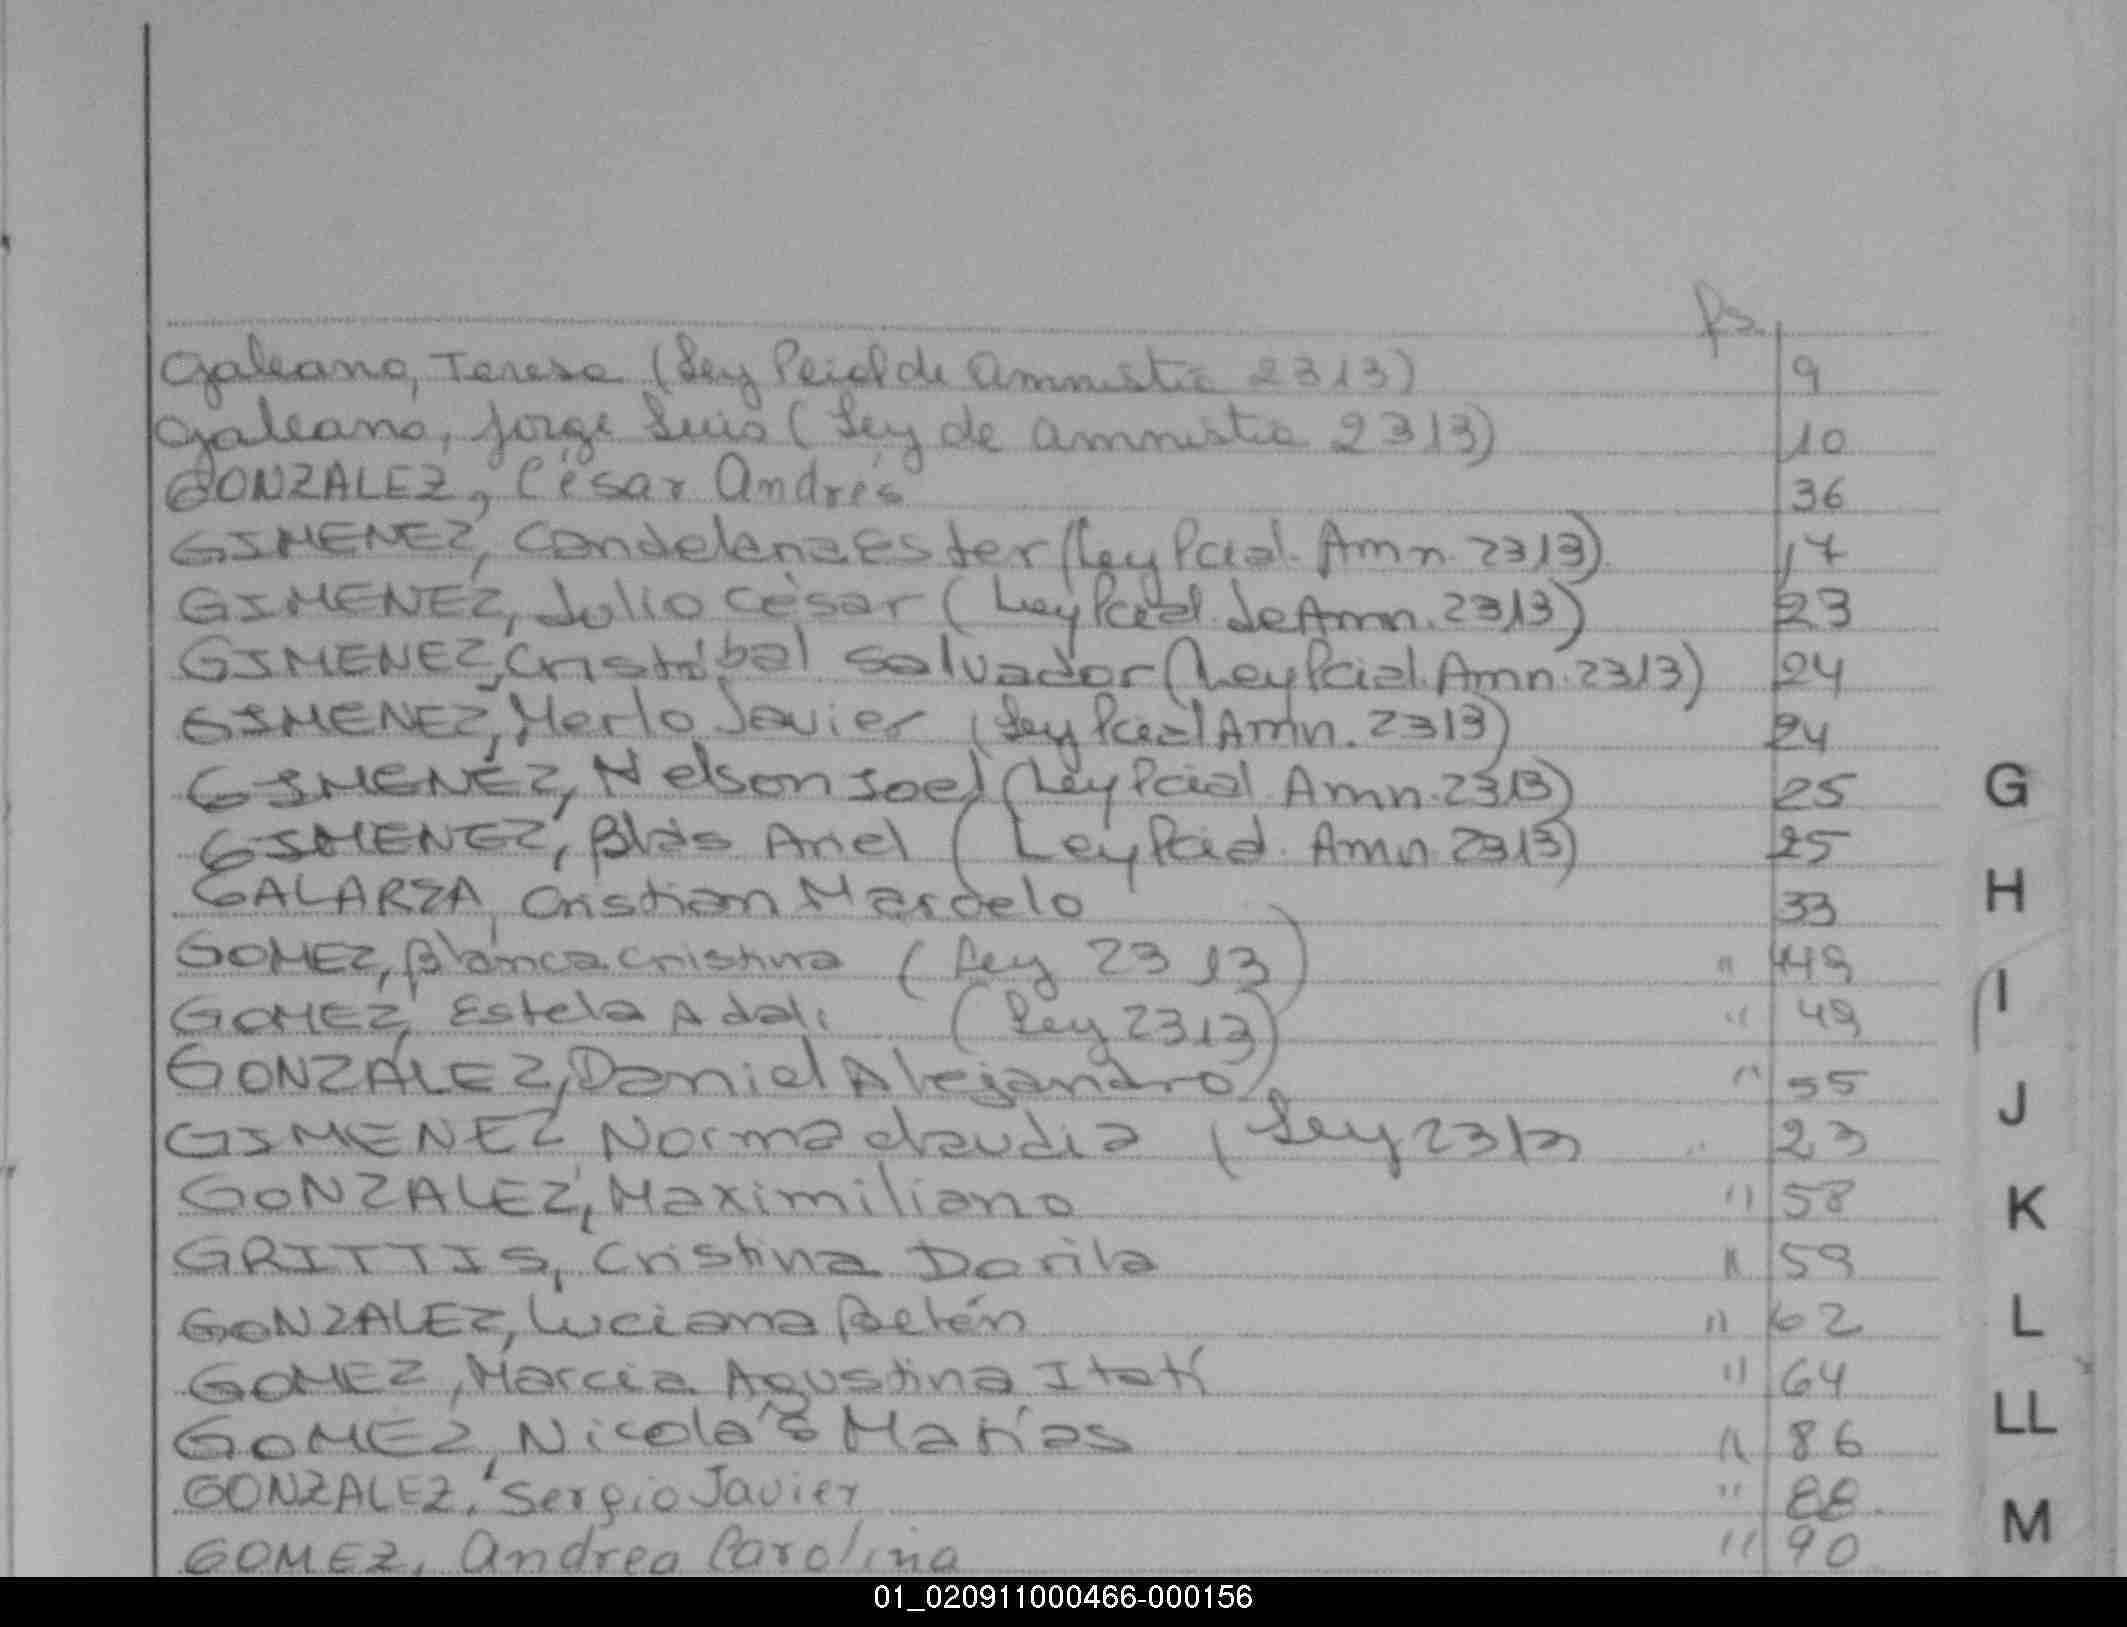 fs.
Galeano, Teresa (Ley Pcial de Amnistia 2313) 9
Galeano, Jorge Luis (Ley de amnistia 2313) 10
GONZALEZ, César Andrés 36
GIMENEZ, Candelaria Ester (Ley Pcial. Amn. 2313) 17
GIMENEZ, Julio César (Ley Pcial. de Amn. 2313) 23
GIMENEZ, Cristóbal Salvador (Ley Pcial. Amn. 2313) 24
GIMENEZ, Merlo Javier (Ley Pcial Amn. 2313) 24
GIMENEZ, Nelson Joel (Ley Pcial Amn. 2313) 25
GIMENEZ, Blás Ariel (Ley Pcial. Amn. 2313) 25
GALARZA, Cristian Marcelo 33
GOMEZ, Blanca Cristina (Ley 2313) " 49
GOMEZ, Estela Adali (Ley 2313) " 49
GONZALEZ, Daniel Alejandro " 55
GIMENEZ Norma Claudia (Ley 2313 " 23
GONZALEZ, Maximiliano " 58
GRITTIS, Cristina Dorila " 59
GONZALEZ, Luciana Belén " 62
GOMEZ, Marcia Agustina Itatí " 64
GOMEZ, Nicolás Matías " 86
GONZALEZ, Sergio Javier " 88.
GOMEZ, Andrea Carolina " 90
G
H
I
J
K
L
LL
M
01_020911000466-000156